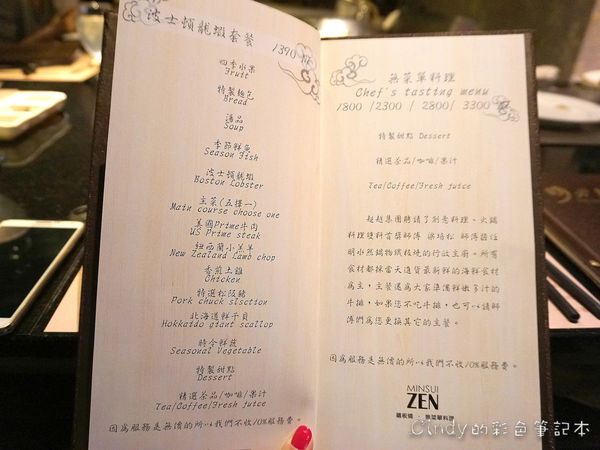 波士頓龍蝦套餐
1390
四季水果
Fruit
特製麵包
Bread
湯品
Soup
季節鮮魚
Season Fish
波士頓龍蝦
Boston Lobster
主菜(五擇一)
Main course choose one
美國Prime牛肉
US Prime steak
紐西蘭小羔羊
New Zealand Lamb chop
香煎土雞
Chicken
特選松阪豬
Pork chuck slsction
北海道鮮干貝
Hokkaido giant scallop
時令鮮蔬
Seasonal Vegetable
特製甜點
Dessert
精選茶品/咖啡/果汁
Tea/Coffee/Fresh juice
因為服務是無償的所以我們不收10%服務費。
無菜單料理
Chef's tasting menu
1800 /2300 / 2800/ 3300
特製甜點 Dessert
精選茶品/咖啡/果汁
Tea/Coffee/Fresh juice
集團聘請了創意料理、火鍋
料理雙料首獎師傅 梁培松 師傅擔任
明水然鍋物鐵板燒的行政主廚。所有
食材都採當天進貨最新鮮的海鮮食材
為主,主餐還為大家準備鮮嫩多汁的
牛排,如果您不吃牛排,也可以請師
傅們為您更換其它的主餐。
因為服務是無償的所以我們不收10%服務費。
MINSUI
ZEN
鐵板燒・無菜單料理
Cindy的彩色筆記本